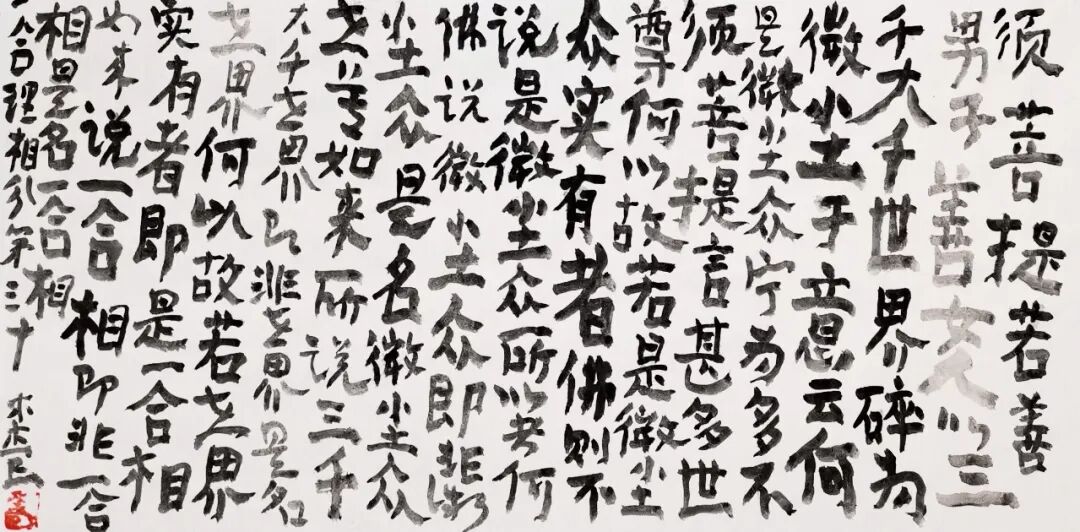 须菩提若善
男子善女人以三
千大千世界碎为
微尘于意云何
是微尘众宁为多不
须菩提言甚多世
尊何以故若是微尘
众实有者佛则不
说是微尘众所以者何
佛说微尘众即非微
尘众是名微尘众
世尊如来所说三千
大千世界即非世界是名
世界何以故若世界
实有者即是一合相
如来说一合相即非一合
相是名一合相
一合理相分第三十